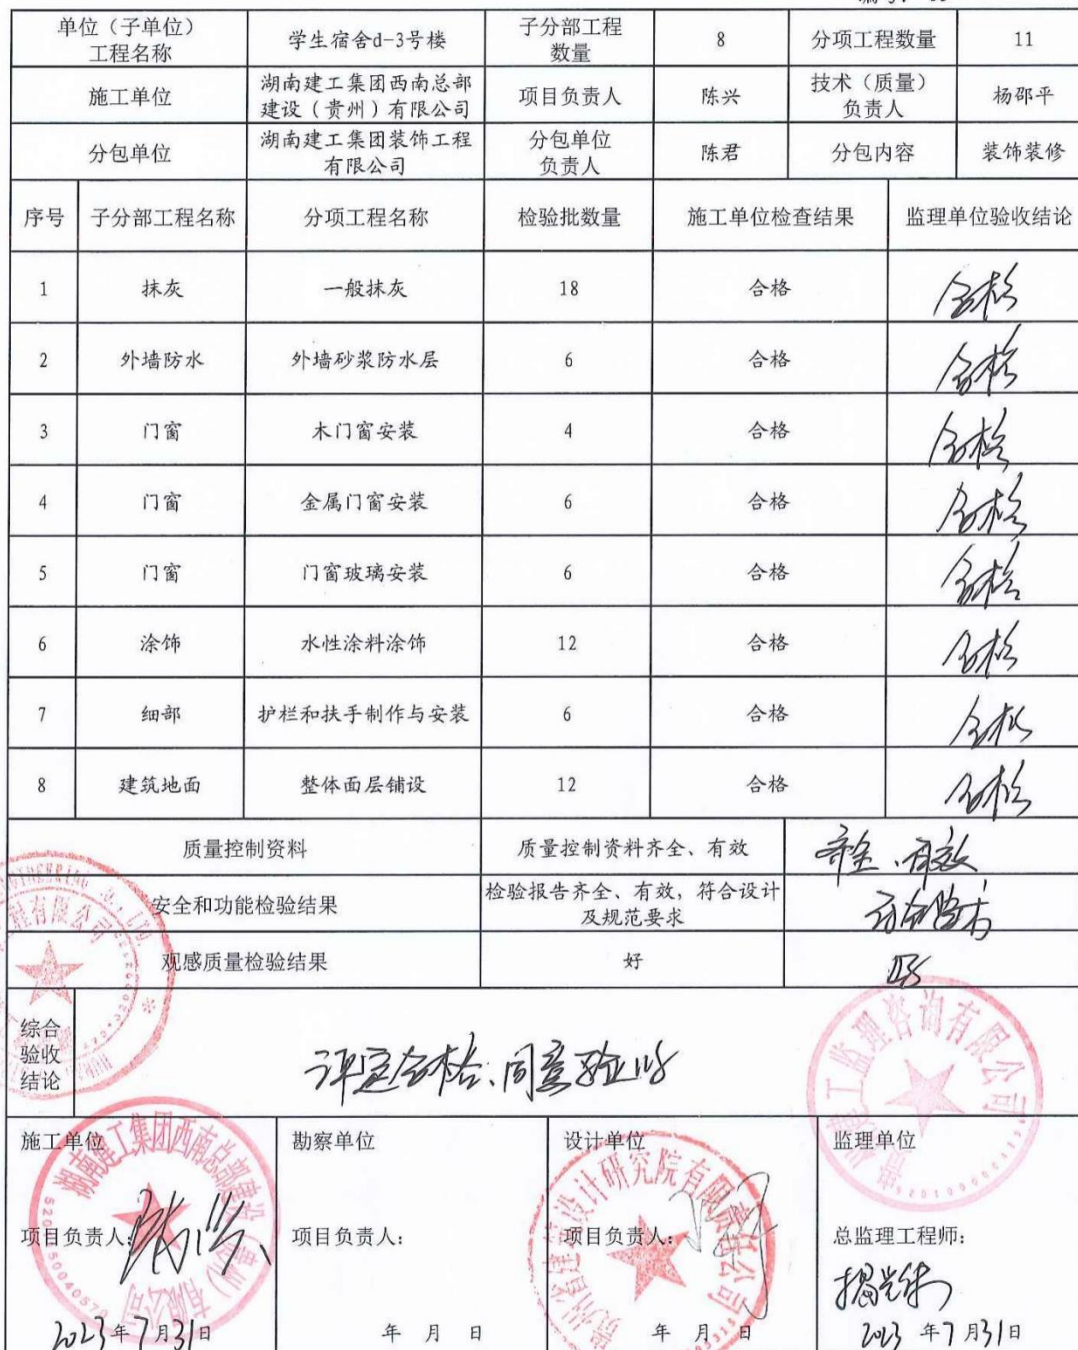 单位（子单位）
工程名称
学生宿舍d-3号楼
子分部工程
数量
8
分项工程数量
11
施工单位
湖南建工集团西南总部
建设（贵州）有限公司
项目负责人
陈兴
技术（质量）
负责人
杨邵平
分包单位
湖南建工集团装饰工程
有限公司
分包单位
负责人
陈君
分包内容
装饰装修
序号 子分部工程名称 分项工程名称 检验批数量 施工单位检查结果 监理单位验收结论
1 抹灰 一般抹灰 18 合格 合格
2 外墙防水 外墙砂浆防水层 6 合格 合格
3 门窗 木门窗安装 4 合格 合格
4 门窗 金属门窗安装 6 合格 合格
5 门窗 门窗玻璃安装 6 合格 合格
6 涂饰 水性涂料涂饰 12 合格 合格
7 细部 护栏和扶手制作与安装 6 合格 合格
8 建筑地面 整体面层铺设 12 合格 合格
质量控制资料 质量控制资料齐全、有效 齐全、有效
安全和功能检验结果
检验报告齐全、有效，符合设计
及规范要求
符合
观感质量检验结果 好 好
综合
验收
结论
评定合格、同意验收
施工单位
项目负责人：
2023年7月31日
湖南建工集团西南总部建设（贵州）有限公司
勘察单位
项目负责人：
年 月 日
设计单位
项目负责人：
年 月 日
贵州省建筑设计研究院有限责任公司
监理单位
总监理工程师：
2023年7月31日
建工监理咨询有限公司